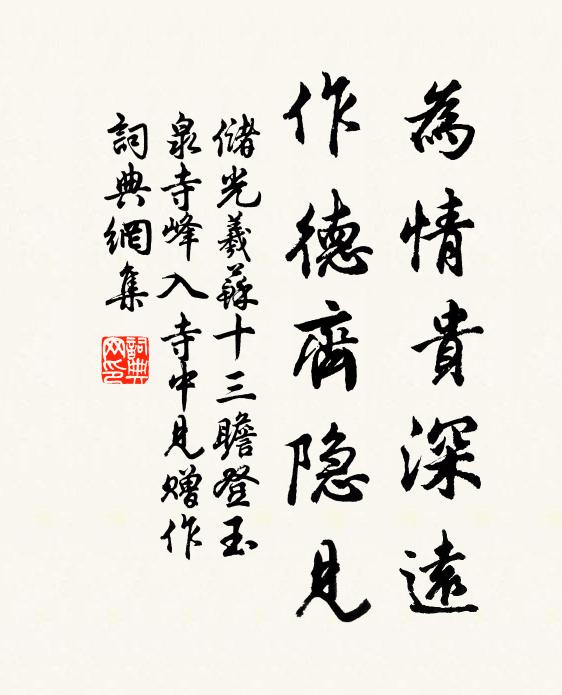 為情貴深遠
作德齊隐見
儲光羲蘇十三瞻登玉
泉寺峰入寺中見贈作
詞典網集
詞典
网印